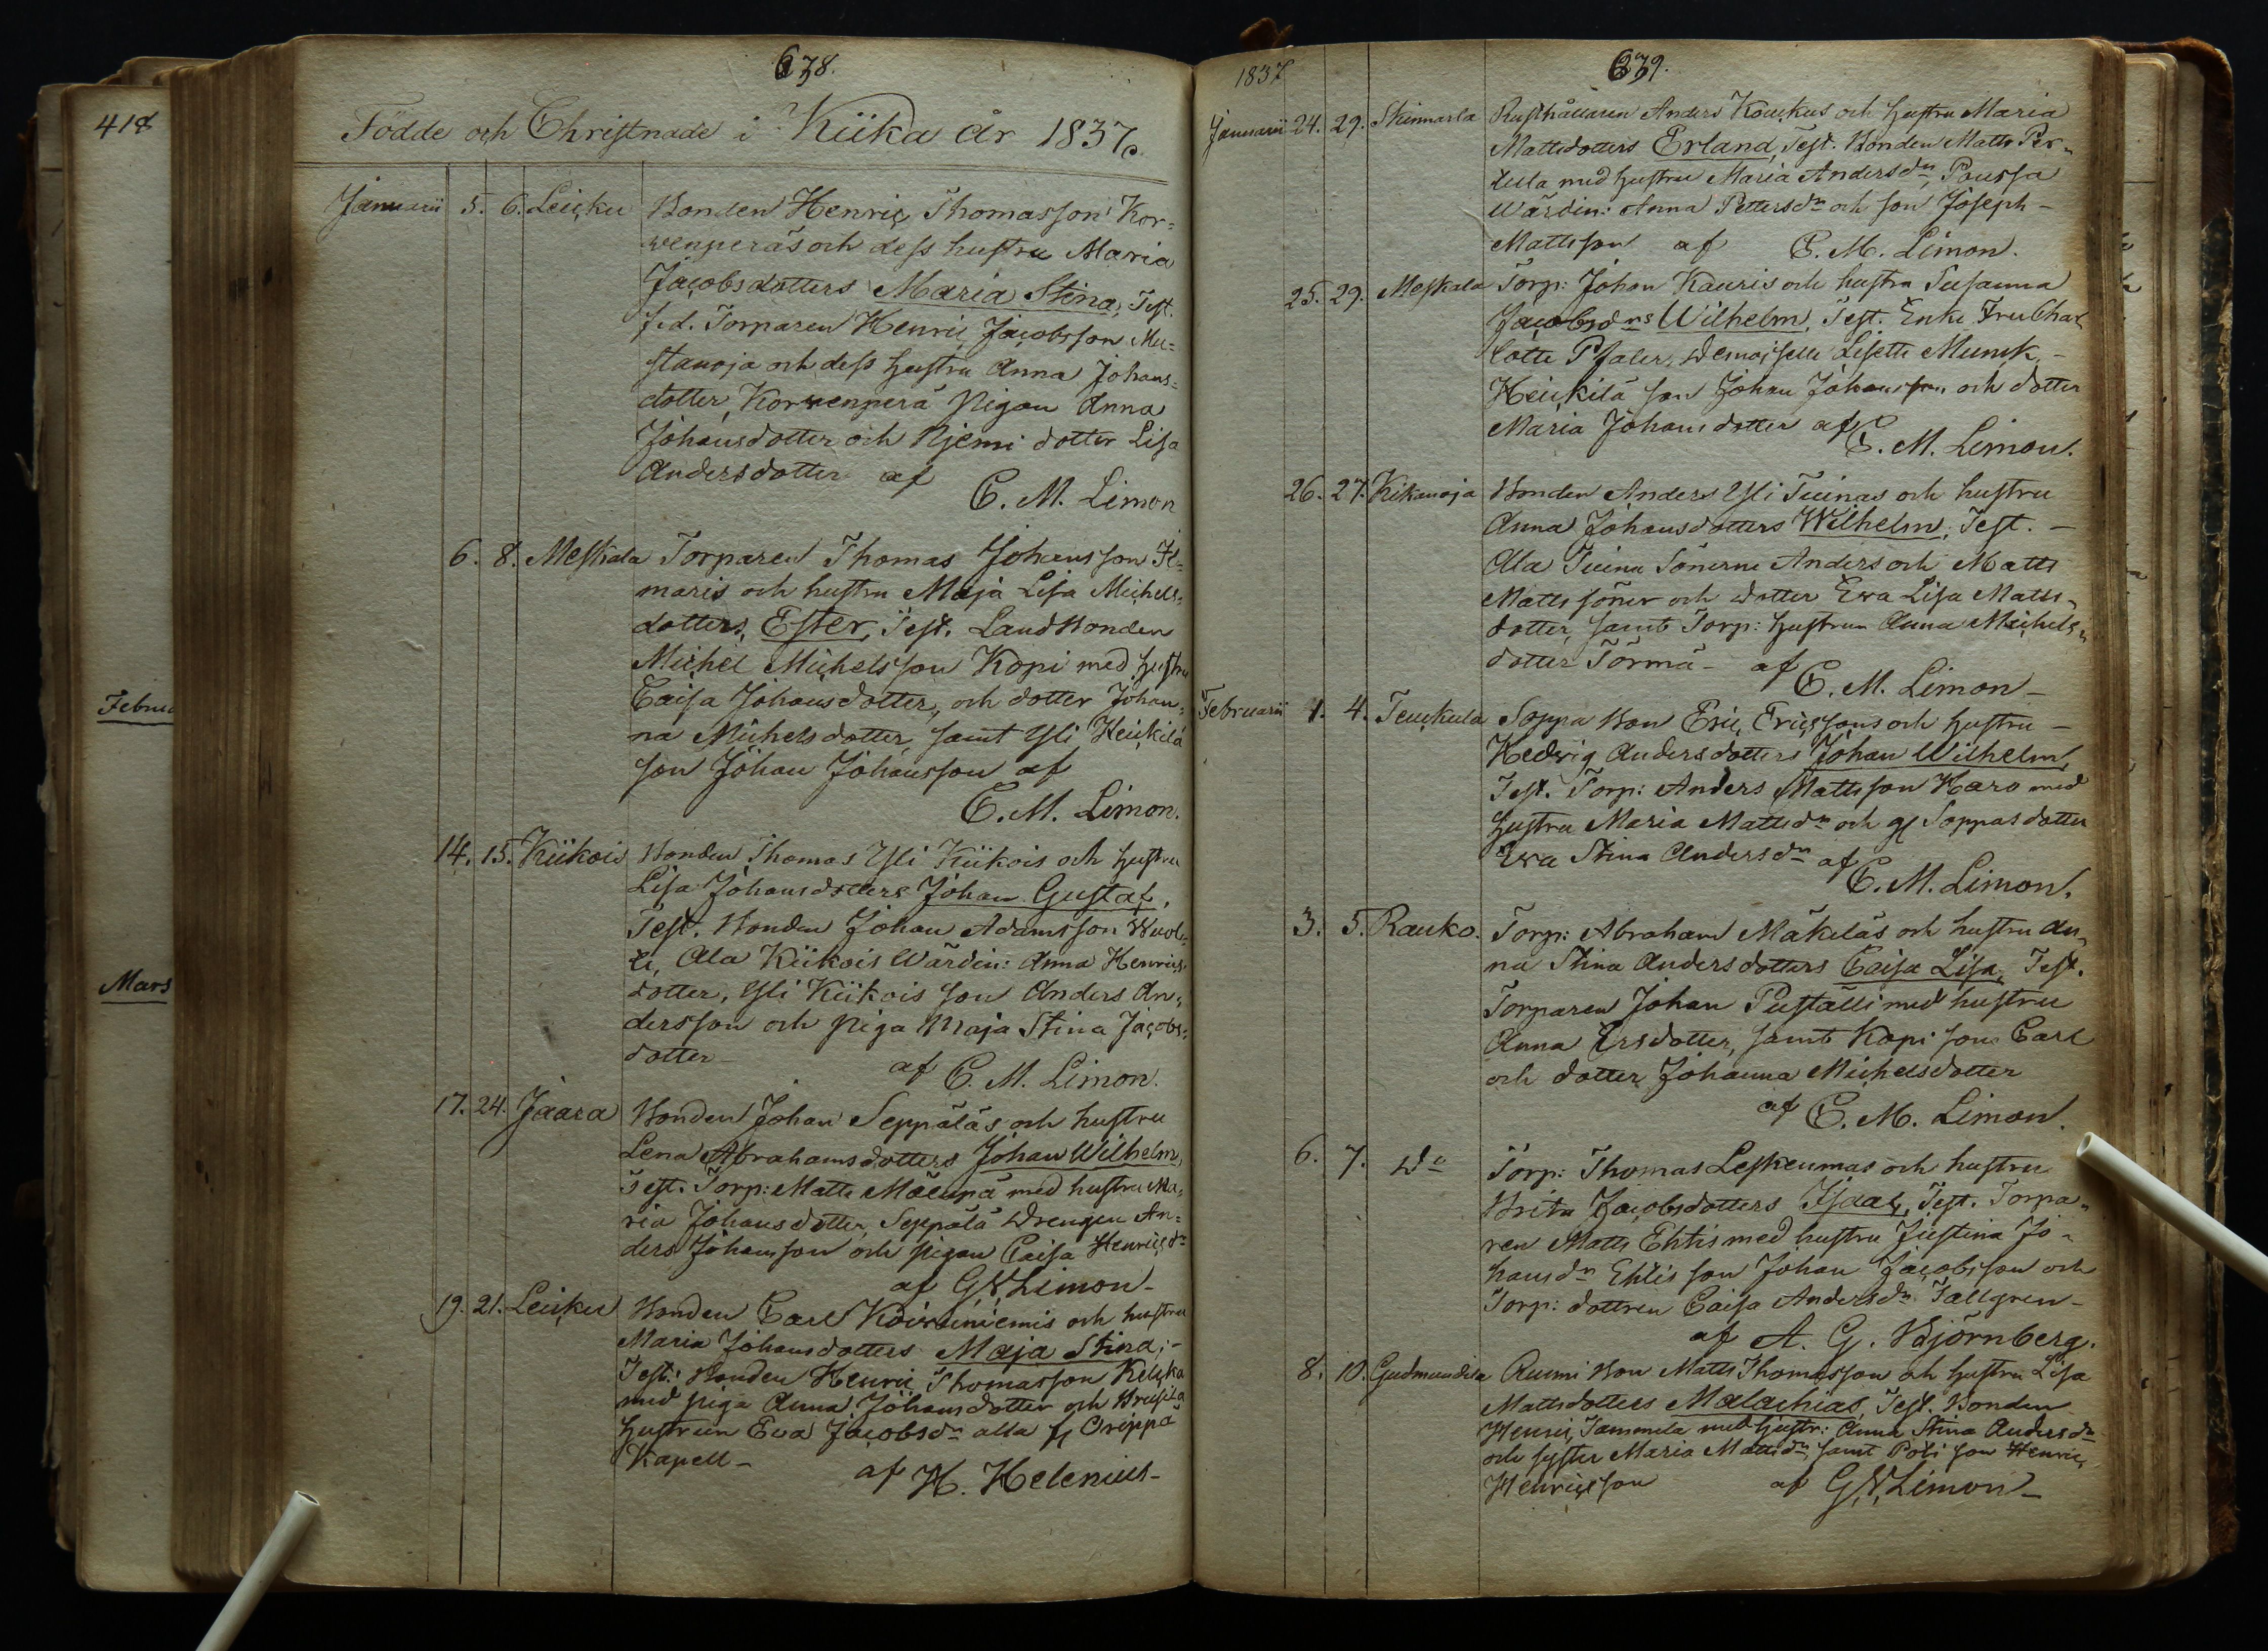 418
Februa
Mars
638.
Födde och Christnade i Kiika År 1837.
Januarii 5. 6. Leiku Bonden Henric Thomasson Kor=
wenperäs och dess hustru Maria
Jacobsdotters Maria Stina, Test.
f.d. Torparen Henric Jacobsson Mu=
stanoja och dess hustru Anna Johans=
dotter, Korwenperä Pigan Anna
Johansdotter och Njemi dotter Lisa
Andersdotter af
C. M. Limon
6. 8. Meskala Torparen Thomas Johansson Il=
maris och hustru Maja Lisa Michels=
dotters, Ester, Test. Landbonden
Michel Michelsson Kopi med hustru
Caisa Johansdotter, och dotter Johan=
na Michelsdotter, samt Yli Heickilä
son Johan Johansson af
C. M. Limon.
14. 15. Kiikois Bonden Thomas Yli Kiikois och hustru
Lisa Johansdotters Johan Gustaf,
Test. Bonden Johan Adamsson
Ala Kiikois Wärdin: Anna Henrics=
dotter, Yli Kiikois son Anders An=
dersson och piga Maja Stina Jacobs=
dotter – af C. M. Limon.
17. 24. Jaara Bonden Johan Seppäläs och hustru
Lena Abrahamsdotters Johan Wilhelm,
Test. Torp: Matts med hustru Ma=
ria Johansdotter, Seppälä Drengen An=
ders Johansson och pigan Caisa Henricsdr
af G. W. Limon –
19. 21. Leiku Bonden Carl Koiwuniemis och hustru
Maria Johansdotters Maja Stina; –
Test: Bonden Henric Thomasson
med piga Anna Johansdotter och
hustrun Eva Jacobsdr alla fr Orippä
Kapell – af H. Helenius –
1837
639.
Januarii 24. 29. Skinnarla Rusthållaren Anders Kouckus och hustru Maria
Mattsdotters Erland, Test. Bonden Matts Per=
tula med hustru Maria Andersdr, Poussa
Wärdin: Anna Pettersdr och son Joseph –
Mattsson af C. M. Limon.
25. 29. Meskala Torp: Johan Kauris och hustru Susanna
Jacobsdrs Wilhelm, Test. Enke Fru Char=
lotte Pfaler, Demoiselle Lisette Munck –
Heickilä son Johan Johansson och dotter
Maria Johansdotter af C. M. Limon.
26. 27. Kikanoja Bonden Anders Yli Tuinas och hustru
Anna Johansdotters Wilhelm, Test. –
Ala Tuina Sönerne Anders och Matts
Mattssöner och dotter Ewa Lisa Matts=
dotter, samt Torp: hustrun Anna Michels=
dotter Törmä – af C. M. Limon –
Februarii 1. 4. Teuckula Soppa Bon Eric Ericssons och hustru –
Hedvig Andersdotters Johan Wilhelm,
Test. Torp: Anders Mattsson Haro med
hustru Maria Mattsdr och gl Soppas dotter
Ewa Stina Andersdr af C. M. Limon.
3. 5. Rauko. Torp: Abraham Mäkeläs och hustru An=
na Stina Andersdotters Caisa Lisa, Test.
Torparen Johan Puställi med hustru
Anna Ersdotter, samt Kopi son Carl
och dotter Johanna Michelsdotter
af C. M. Limon.
6. 7. Do Torp: Thomas Leskenmas och hustru
Brita Jacobsdotters Isaac, Test. Torpa=
ren Matts Ehtis med hustru Justina Jo=
hansdr Ehtis son Johan Jacobsson och
Torp: dottren Caisa Andersdr Tallgren –
af A. G. Björnberg.
8. 10. Gudmundila Rumi Bon Matts Thomasson och hustru Lisa
Mattsdotters Malachias, Test. Bonden
Henric Tammela med hustr: Anna Stina Andersdr
och syster Maria Mattsdr, samt Poti son Henric
Henricsson af G. W. Limon –